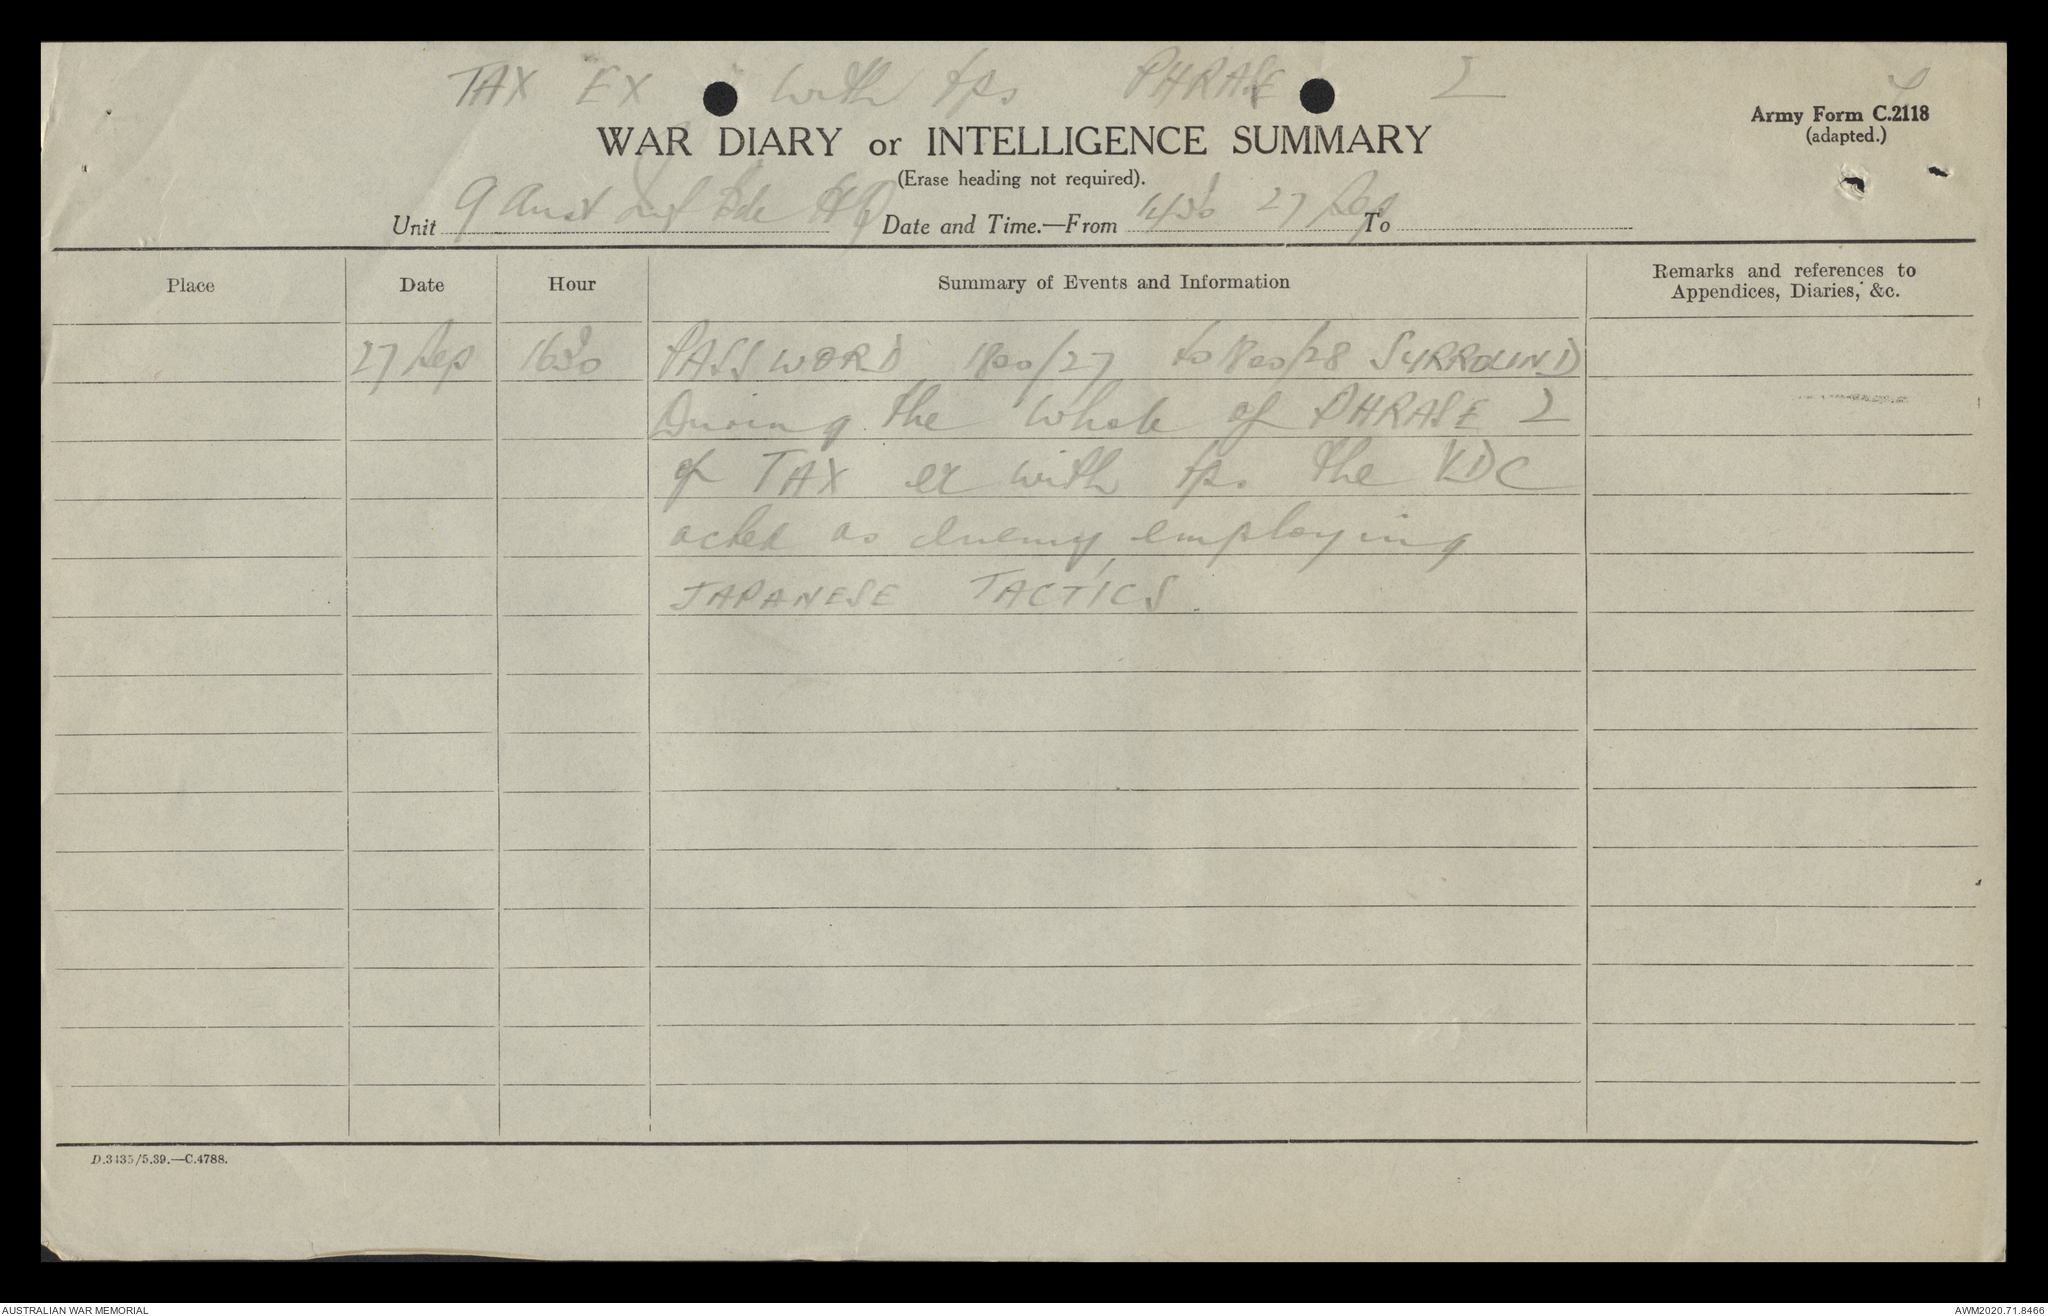 TAX EX with tps PHRASE 2
Army Form C.2118
(adapted.)
WAR DIARY or INTELLIGENCE SUMMARY
(Erase heading not required).
Unit 9 Aust Inf Bde HQ Date and Time.—From 1430 27 Sep To
Place Date Hour Summary of Events and Information Remarks and references to
Appendices, Diaries, &c.
27 Sep 1630 PASSWORD 1800/27 to 1800/28 SURROUND
During the whole of PHRASE 2
of TAX ex with tps. the VDC
acted as enemy, employing
JAPANESE TACTICS.
D.3435/5.39.—C.4788.
AUSTRALIAN WAR MEMORIAL
AWM2020.71.8466